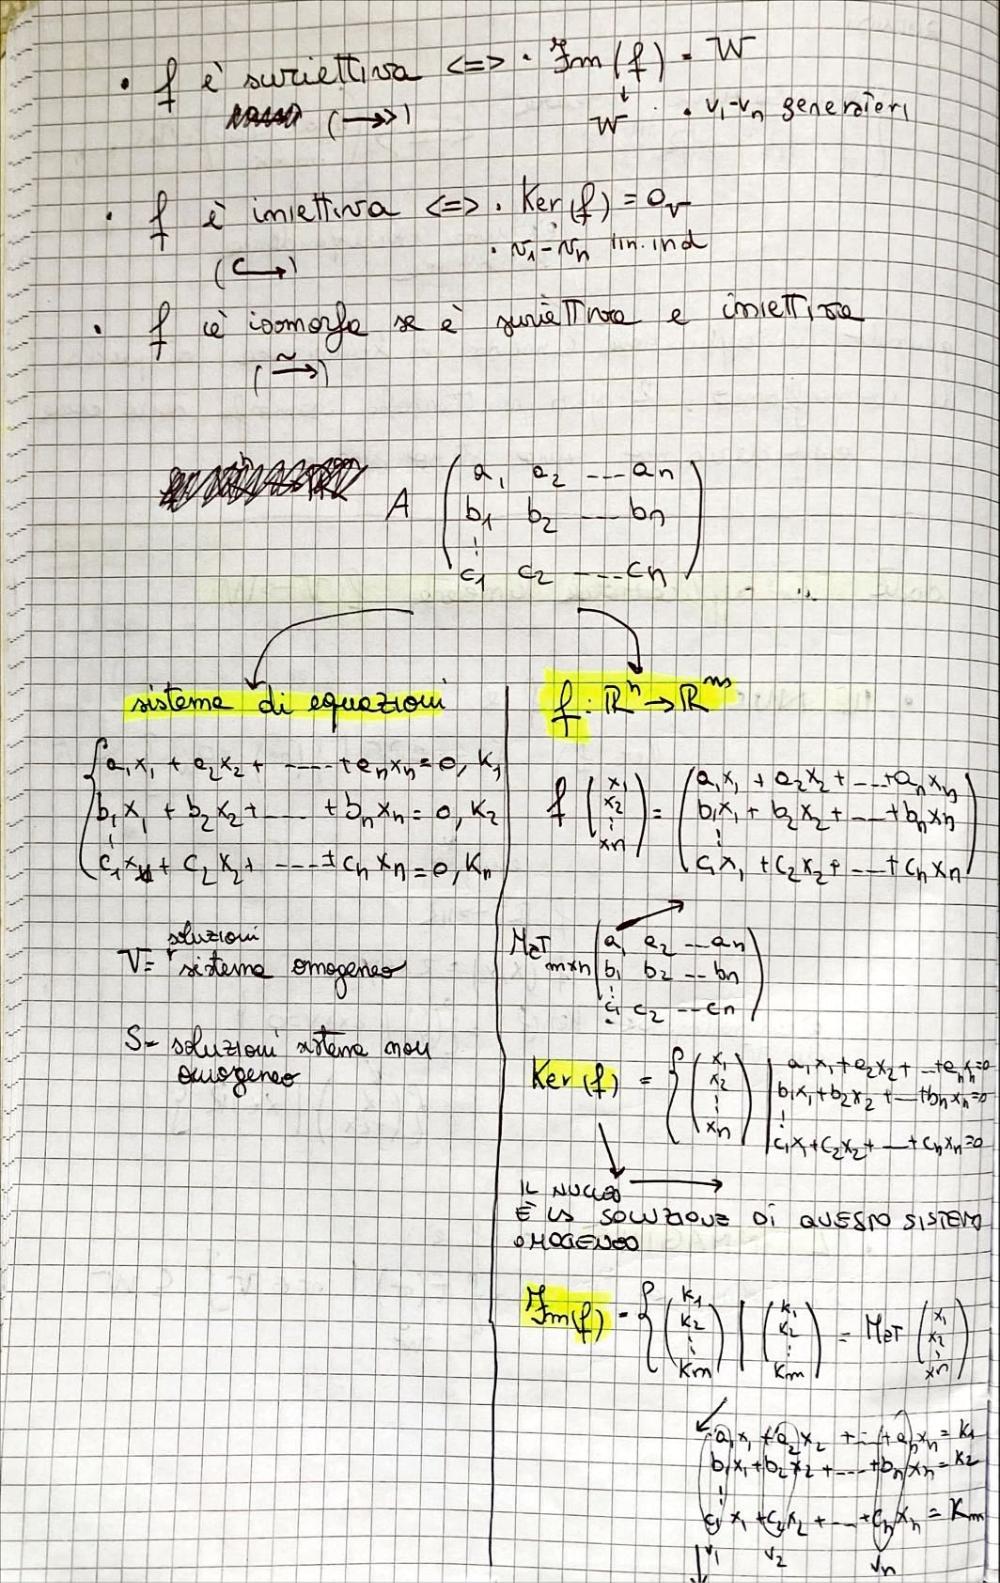 • f è suriettiva <=> • Im(f) = W
(→>) ↓
W • v1-vn generatori
• f è iniettiva <=> • Ker(f) = 0v
• v1-vn lin. ind
(↪)
• f è isomorfa se è suriettiva e iniettiva
(~→)
A ( a1 a2 ---- an
b1 b2 ---- bn
⋮
c1 c2 ---- cn )
sistema di equazioni
{ a1x1 + a2x2 + ------ + anxn = 0, K1
b1x1 + b2x2 + ---- + bnxn = 0, K2
⋮
c1x1 + c2x2 + ---- + cnxn = 0, Kn
soluzioni
V = sistema omogeneo
S = soluzioni sistema non
omogeneo
f: ℝn → ℝm
f ( x1 x2 ⋮ xn ) = ( a1x1 + a2x2 + --- + anxn
b1x1 + b2x2 + --- + bnxn
⋮
c1x1 + c2x2 + --- + cnxn )
Mat mxn ( a1 a2 --- an
b1 b2 --- bn
⋮
c1 c2 --- cn )
Ker(f) = { ( x1 x2 ⋮ xn ) | a1x1 + a2x2 + --- + anxn = 0
b1x1 + b2x2 + --- + bnxn = 0
⋮
c1x1 + c2x2 + --- + cnxn = 0
IL NUCLEO →
È LA SOLUZIONE DI QUESTO SISTEMA
OMOGENEO
Im(f) = { ( K1 K2 ⋮ Km ) | ( K1 K2 ⋮ Km ) = Mat ( x1 x2 ⋮ xn )
a1x1 + a2x2 + --- + anxn = K1
b1x1 + b2x2 + ---- + bnxn = K2
⋮
c1x1 + c2x2 + --- + cnxn = Km
v1 v2 vn